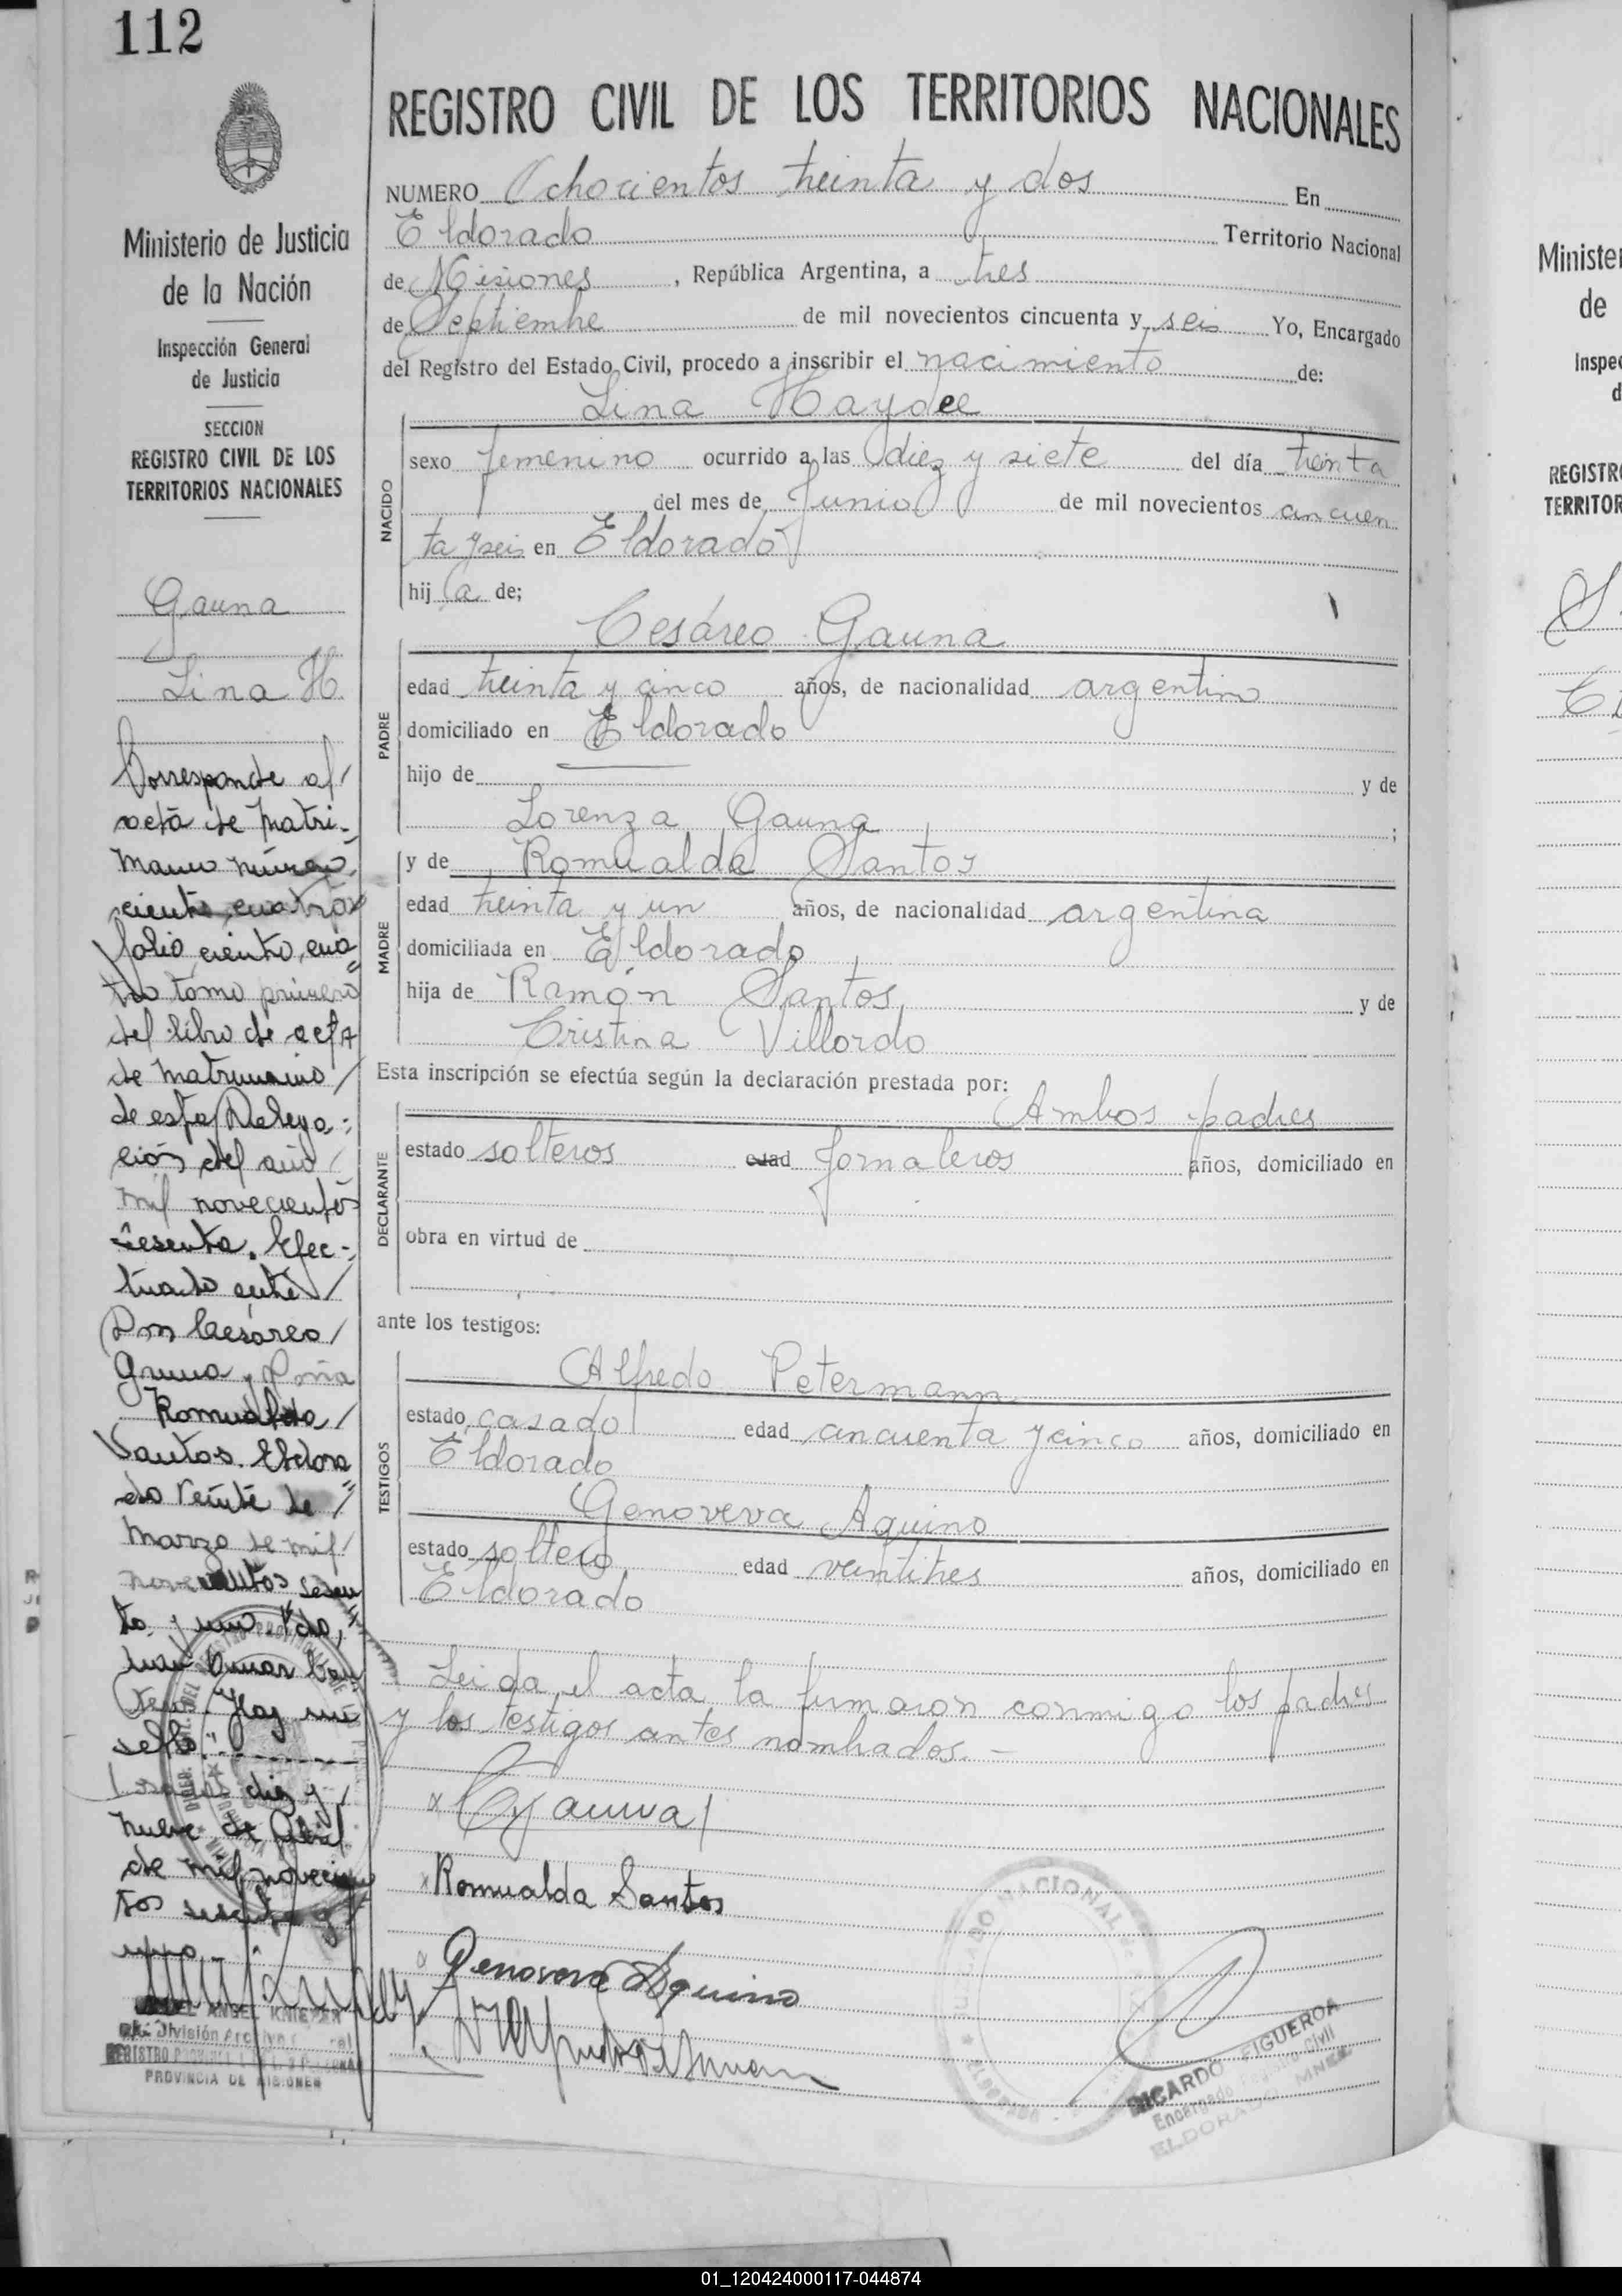 112
Ministerio de Justicia
de la Nación
Inspección General
de Justicia
SECCION
REGISTRO CIVIL DE LOS
TERRITORIOS NACIONALES
Gauna
Lina H.
Corresponde al
acta de matri-
monio número
ciento cuatro
folio ciento cua
tro tomo primero
del libro de acta
de matrimonio
de esta Delega-
ción del año
mil novecientos
sesenta. Efec-
tuado entre
Don Cesáreo
Gauna y Doña
Romualda
Santos. Eldora
do veinte de
Marzo de mil
novecientos sesen
ta y uno.
Hay un
sello."
diez y
nueve de Abril
de mil novecien
tos sesenta y
uno.-
ANGEL KNIEPER
División Archivo
PROVINCIA DE MISIONES
REGISTRO CIVIL DE LOS TERRITORIOS NACIONALES
NUMERO Ochocientos treinta y dos En
Eldorado Territorio Nacional
de Misiones, República Argentina, a tres
de Septiembre de mil novecientos cincuenta y seis Yo, Encargado
del Registro del Estado Civil, procedo a inscribir el nacimiento de:
NACIDO
Lina Haydee
sexo femenino ocurrido a las diez y siete del día treinta
del mes de Junio de mil novecientos cincuen
ta y seis en Eldorado
hija de;
PADRE
Cesáreo Gauna
edad treinta y cinco años, de nacionalidad argentino
domiciliado en Eldorado
hijo de y de
Lorenza Gauna ;
MADRE
y de Romualda Santos
edad treinta y un años, de nacionalidad argentina
domiciliada en Eldorado
hija de Ramón Santos y de
Cristina Villordo
Esta inscripción se efectúa según la declaración prestada por:
DECLARANTE
Ambos padres
estado solteros edad Jornaleros años, domiciliado en
obra en virtud de
ante los testigos:
TESTIGOS
Alfredo Petermann
estado casado edad cincuenta y cinco años, domiciliado en
Eldorado
Genoveva Aquino
estado soltero edad veintitres años, domiciliado en
Eldorado
Leida el acta la firmaron conmigo los padres
y los testigos antes nombrados.-
x CGauna
x Romualda Santos
x Genoveva Aquino
RICARDO FIGUEROA
Encargado Registro Civil
ELDORADO MNES
Minister
de
Inspec
d
REGISTR
TERRITOR
01_120424000117-044874